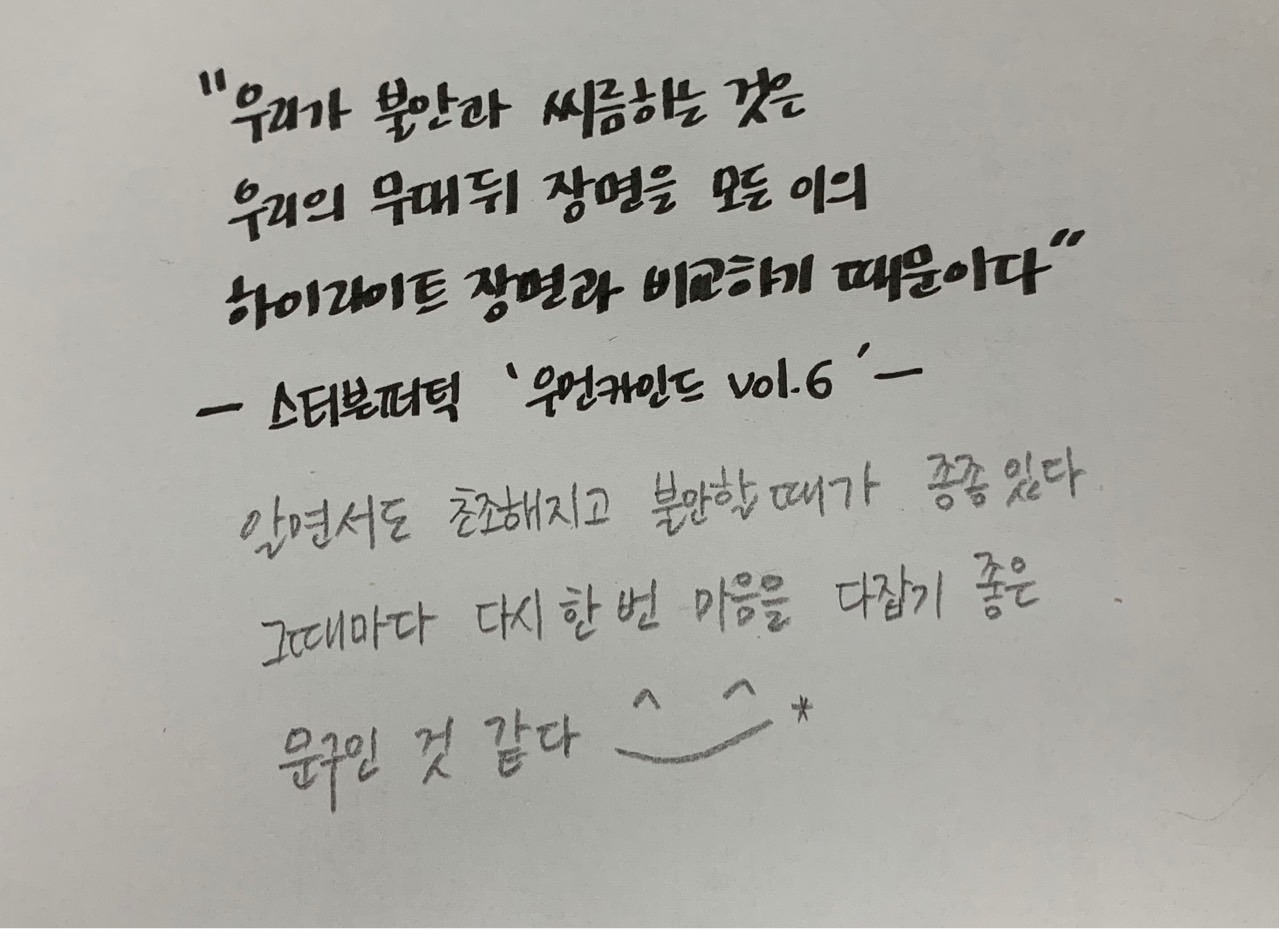 "우리가 불안과 씨름하는 것은
우리의 무대뒤 장면을 모든 이의
하이라이트 장면과 비교하기 때문이다"
- 스티븐퍼틱 '우먼카인드 vol.6' -
알면서도 초조해지고 불안할때가 종종있다
그때마다 다시한번 마음을 다잡기 좋은
문구인 것 같다 ^‿^*